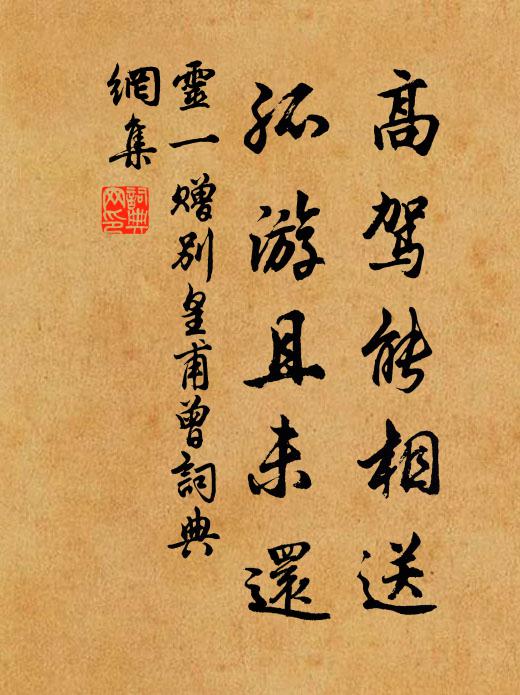 高駕能相送
孤游且未還
靈一贈別皇甫曾詞典
網集
詞典
网印